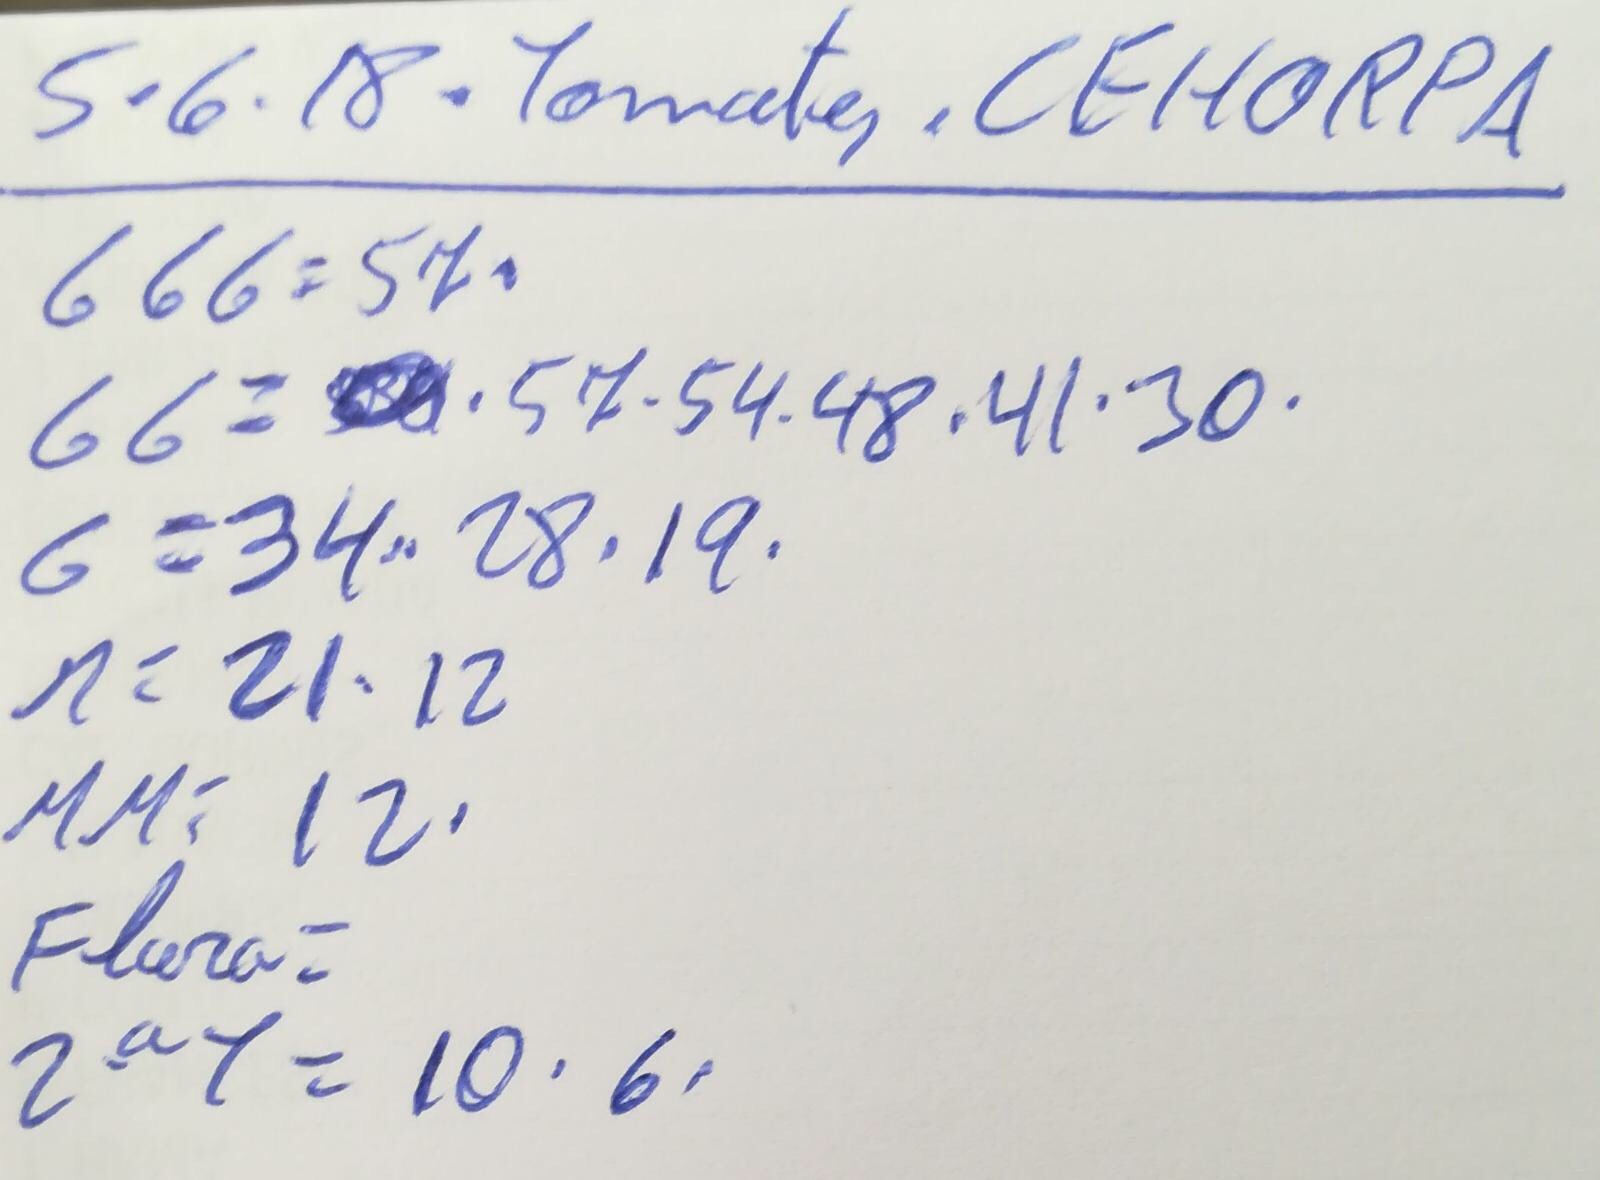 5.6.18. Tomates. CEHORPA
GGG = 57.
GG = . 57. 54. 48. 41. 30.
G = 34.. 28. 19.
M = 21. 12
MM = 12.
Flora =
2ª Y = 10. 6.